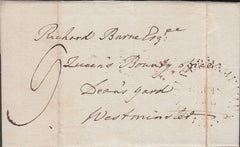 Richard Burne Esqre
Queen's Bounty office
Dean's yard
Westminster
9